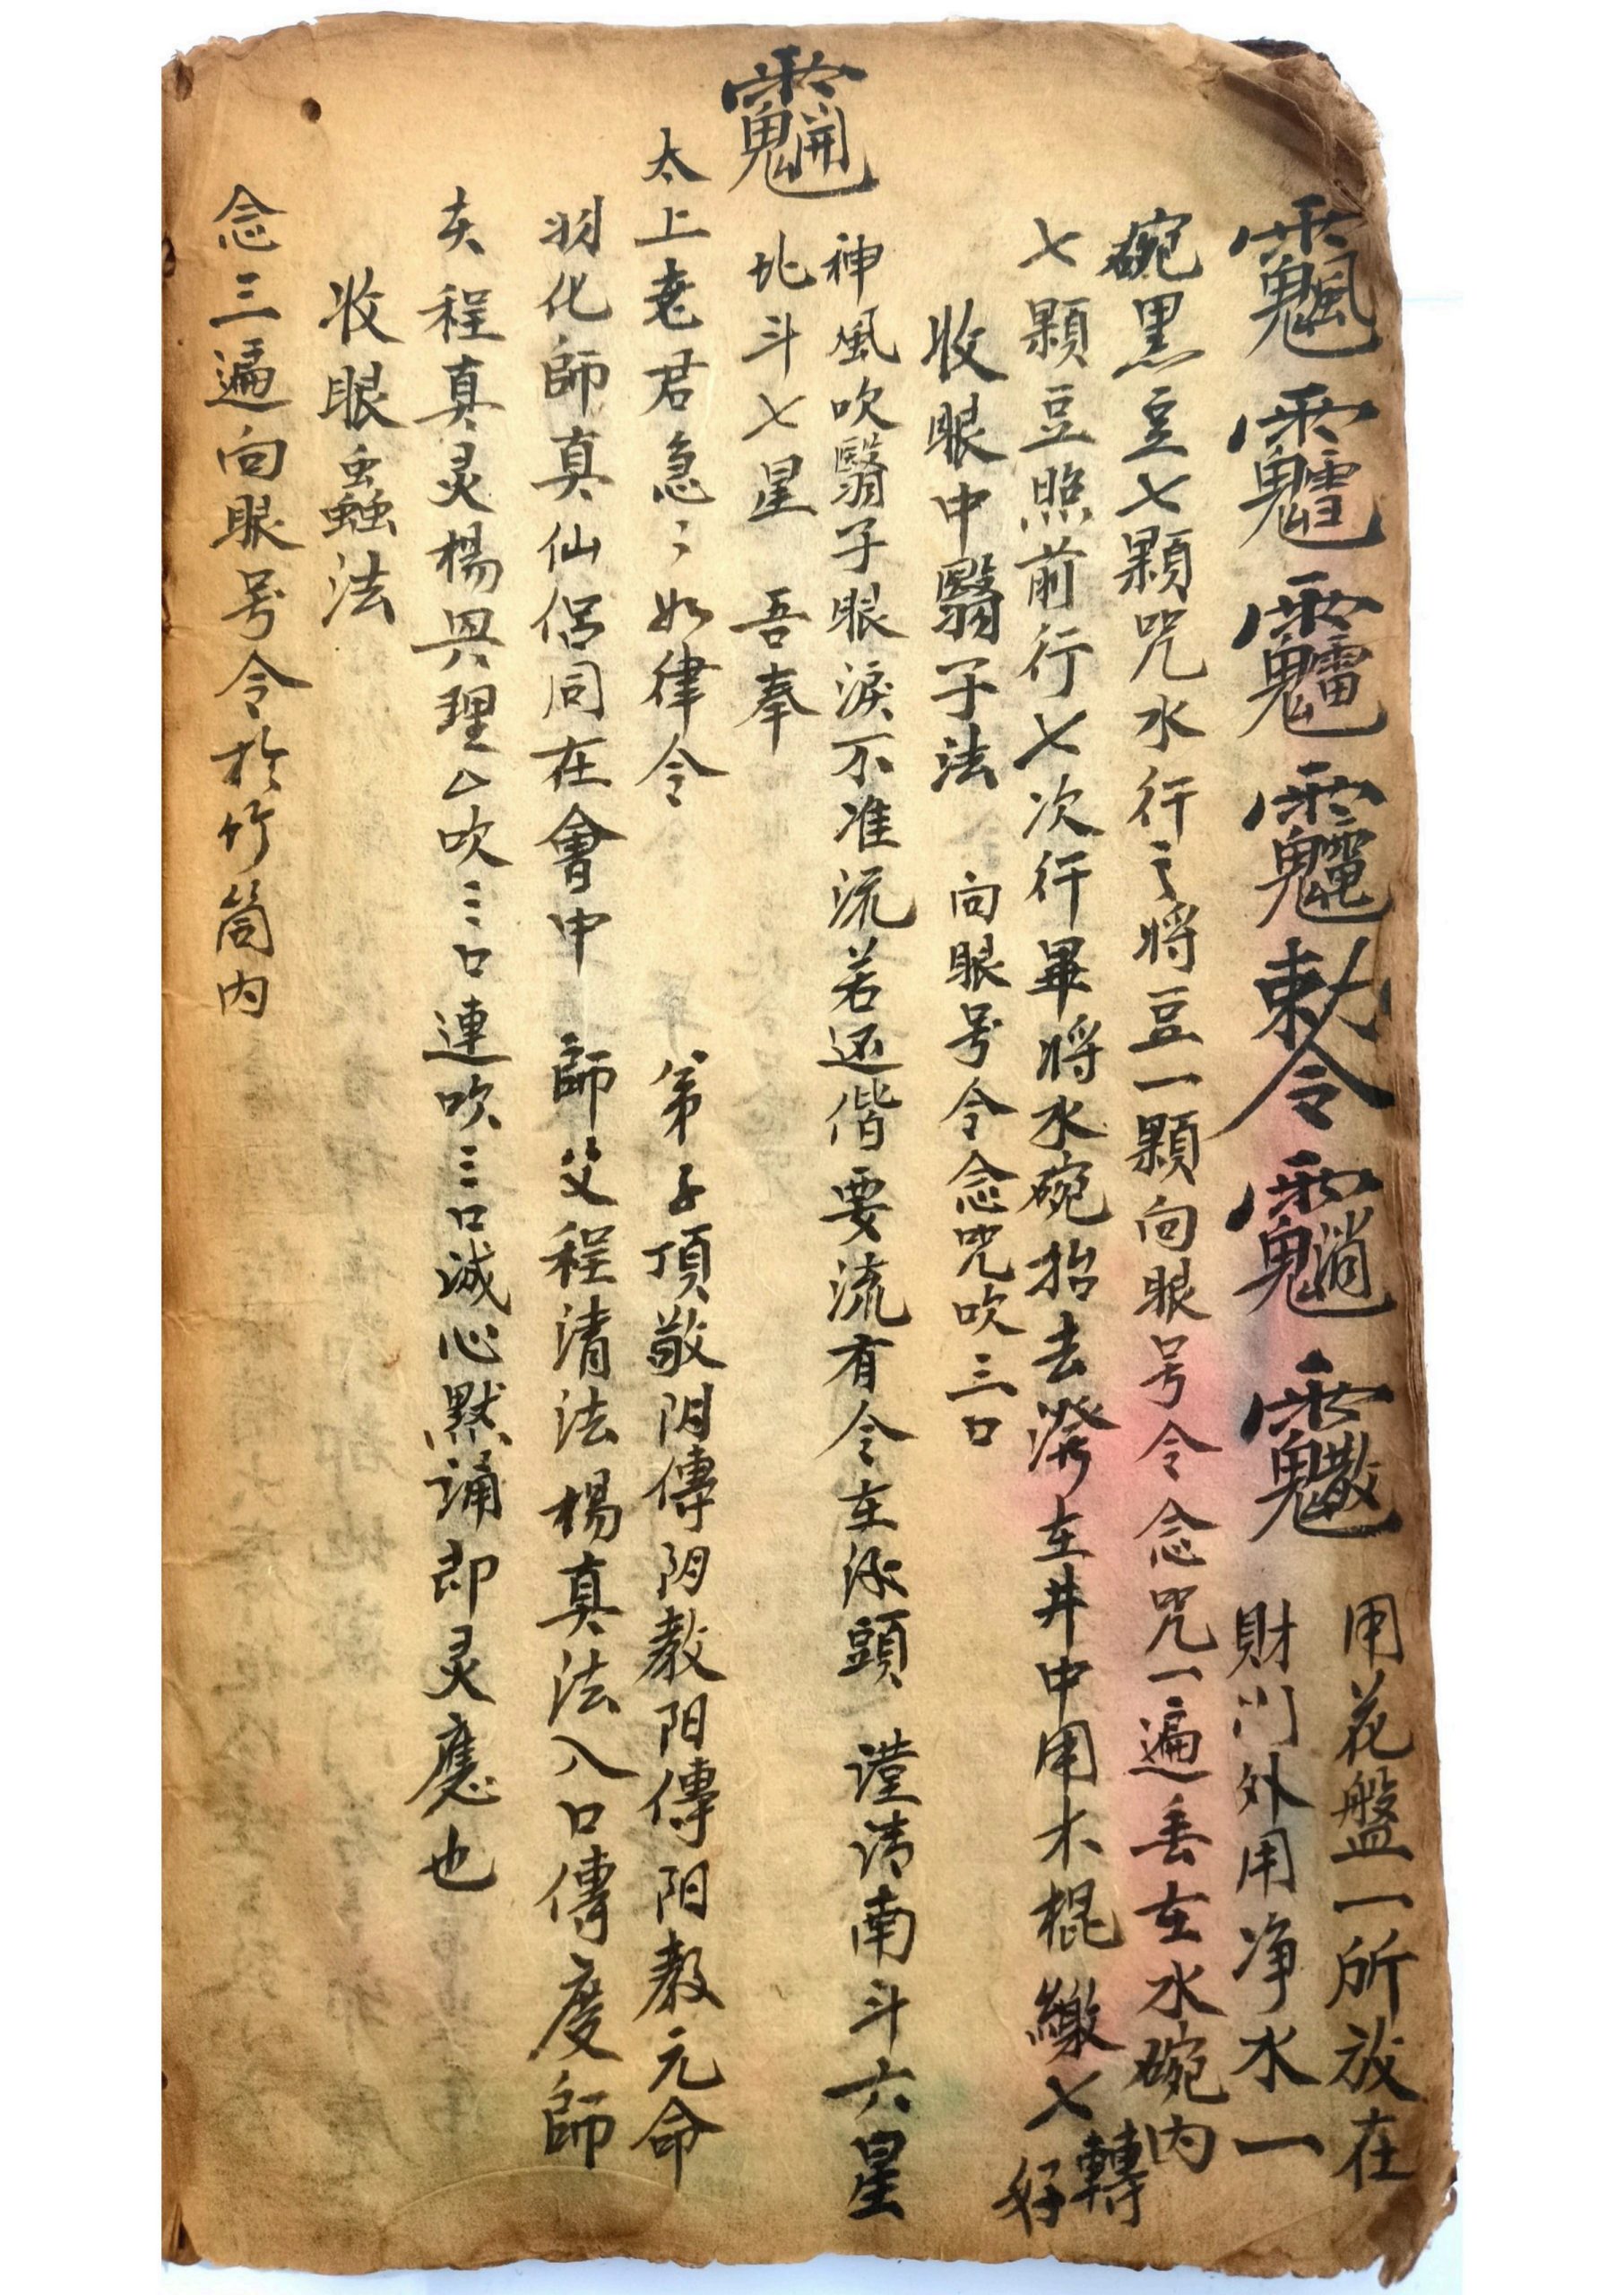 敕令
用花盤一所放在
財门外用净水一
碗黑豆七顆咒水行之將豆一顆向眼号令念咒一遍丢在水碗内
七顆豆照前行七次行畢將水碗抬去潑在井中用木棍繳七轉好
收眼中翳子法 向眼号令念咒吹三口
神風吹翳子眼淚不准流若还偕要流有令在源頭 謹请南斗六星
北斗七星 吾奉
太上老君急ミ如律令 弟子頂敬阴傳阴教阳傳阳教元命
羽化師真仙侣同在會中 師父程清法楊真法入口傳度師
夫程真灵楊興理厶吹三口連吹三口誠心默誦即灵應也
收眼蟲法
念三遍向眼号令於竹筒内